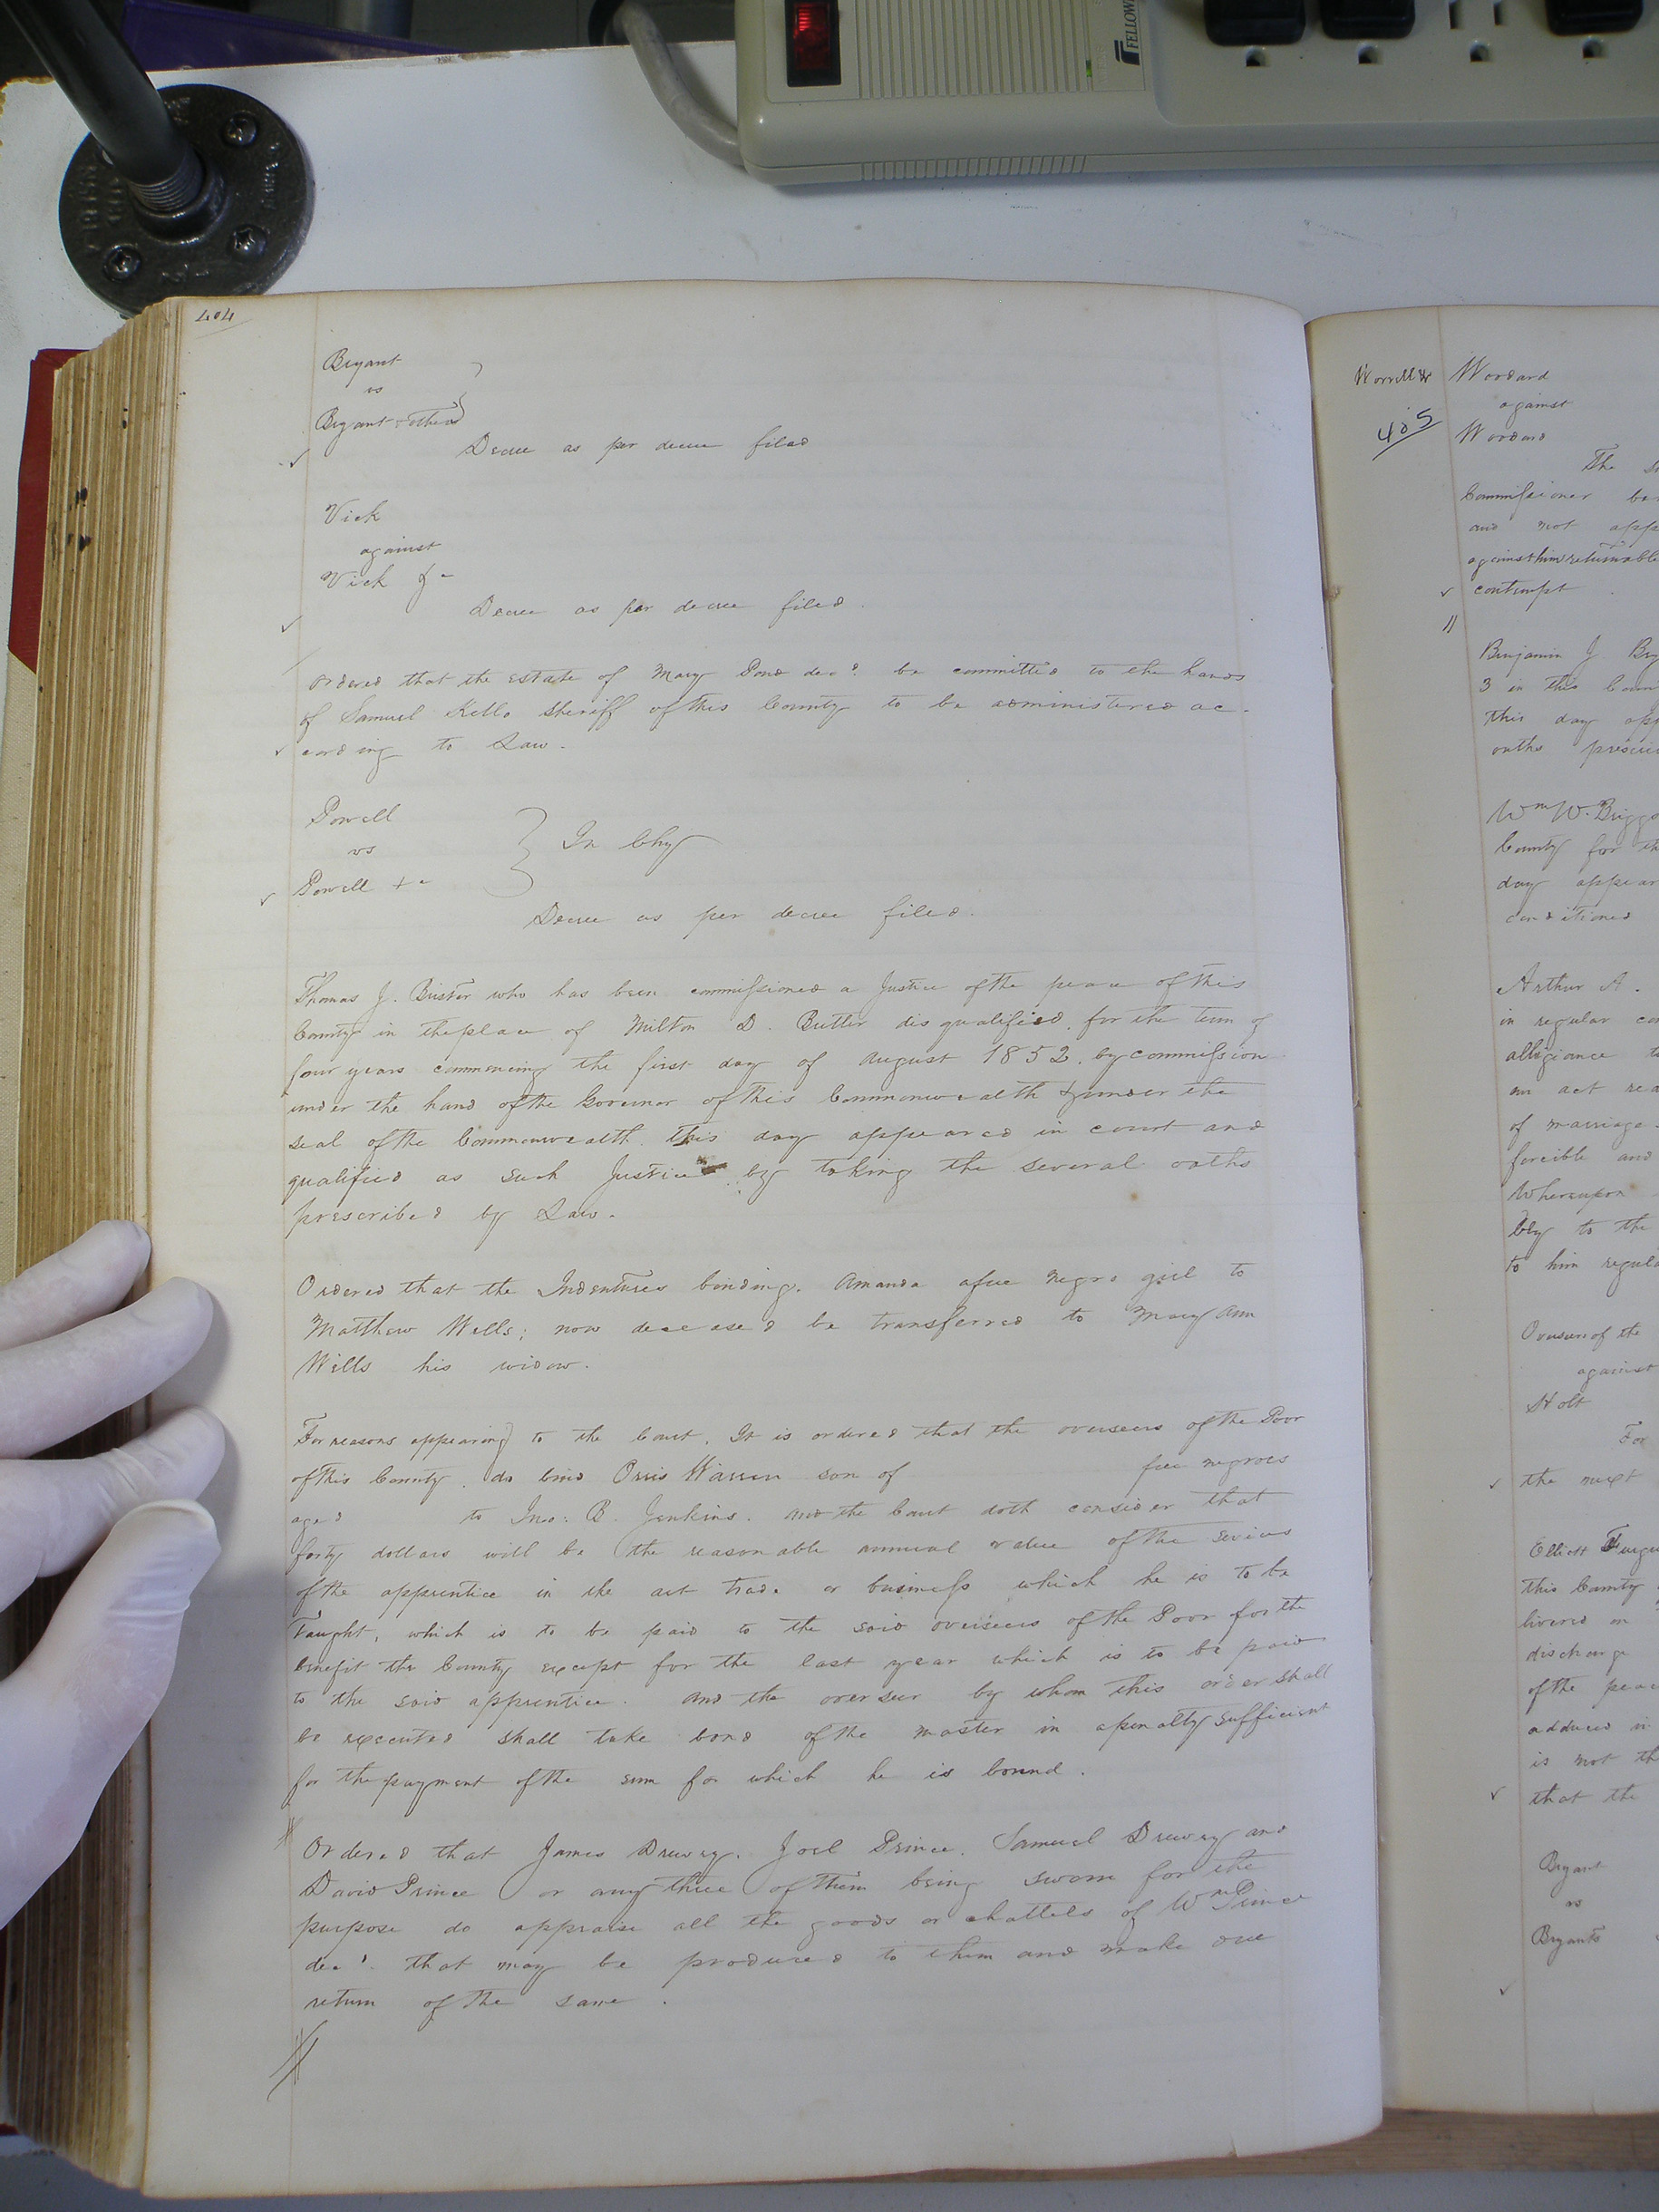 FELLOW
404
Bryant
vs
Bryant & others
Decree as per decree filed
Vick
against
Vick &c
Decree as per decree filed.
Ordered that the estate of Mary Pond decd. be committed to the hands
of Samuel Kello Sheriff of this County to be administered ac-
cording to Law.
Powell
vs
Powell +c
In Chy
Decree as per decree filed.
Thomas J. Buster who has been commissioned a Justice of the peace of this
County in the place of Milton D. Butler disqualified, for the term of
four years commencing the first day of August 1852, by commission
under the hand of the Governor of this Commonwealth & under the
seal of the Commonwealth this day appeared in court and
qualified as such Justice by taking the several oaths
prescribed by Law.
Ordered that the Indentures binding Amanda a free negro girl to
Matthew Wells; now deceased be transferred to Mary Ann
Wills his widow.
For reasons appearing to the Court. It is ordered that the overseers of the Poor
of this County, do bind Orris Warren son of free negroes
aged to Jno: B. Jenkins. and the Court doth consider that
forty dollars will be the reasonable annual value of the services
of the apprentice in the art trade or business which he is to be
Taught, which is to be paid to the said overseers of the Poor for the
benefit the County except for the last year which is to be paid
to the said apprentice. And the overseer by whom this order shall
be executed shall take bond of the master in a penalty sufficient
for the payment of the sum for which he is bound.
Ordered that James Drewry, Joel Prince, Samuel Drewry and
David Prince or any three of them being sworn for the
purpose do appraise all the goods or chattels of Wm Prince
decd. that may be produced to them and make due
return of the same.
Worrell &
405
Woodard
against
Woodard
The
Commissioner
and not
against him returnable
contempt
Benjamin J
3 in this
this day
oaths
Wm W. Briggs
County for
day
conditioned
Arthur A.
in regular
allegiance
an act
of marriage
forcible and
Whereupon
to the
to him
Overseers of the
against
Holt
For
the next
Elliott
this County
livered on
discharge
of the
adduced in
is not
that the
Bryant
vs
Bryants